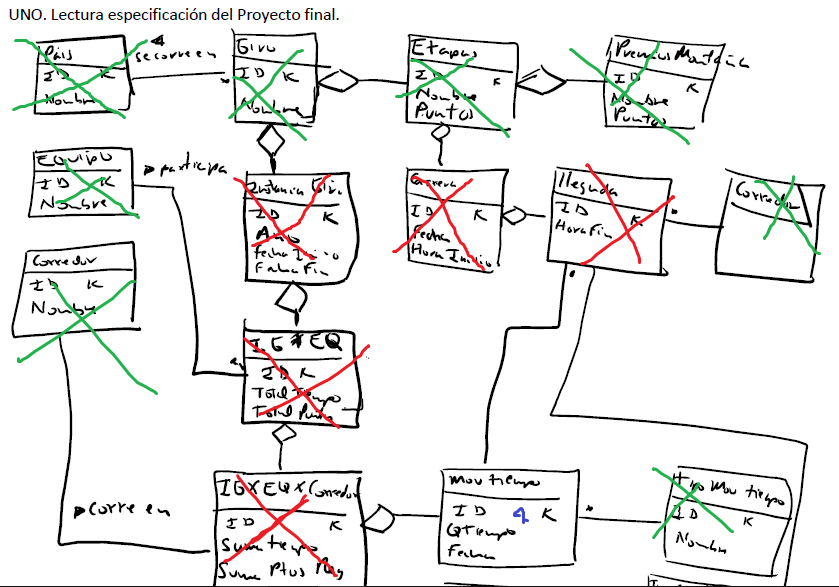 UNO. Lectura especificación del Proyecto final.
País
ID K
Nombre
se corre en
Giro
ID K
Nombre
Etapas
ID K
Nombre
Puntos
Premios Montaña
ID K
Nombre
Puntos
Equipo
ID K
Nombre
participa
Instancia Giro
ID K
Año
Fecha Inicio
Fecha Fin
Carrera
ID K
Fecha
Hora Inicio
llegada
ID K
Hora Fin
Corredor
Corredor
ID K
Nombre
ID K
Total Tiempo
Total
IGXEQXCorredor
ID K
Suma tiempo
Suma Ptos
Corre en
Mov tiempo
ID 4 K
QTiempo
Fecha
Tipo Mov tiempo
ID K
Nombre